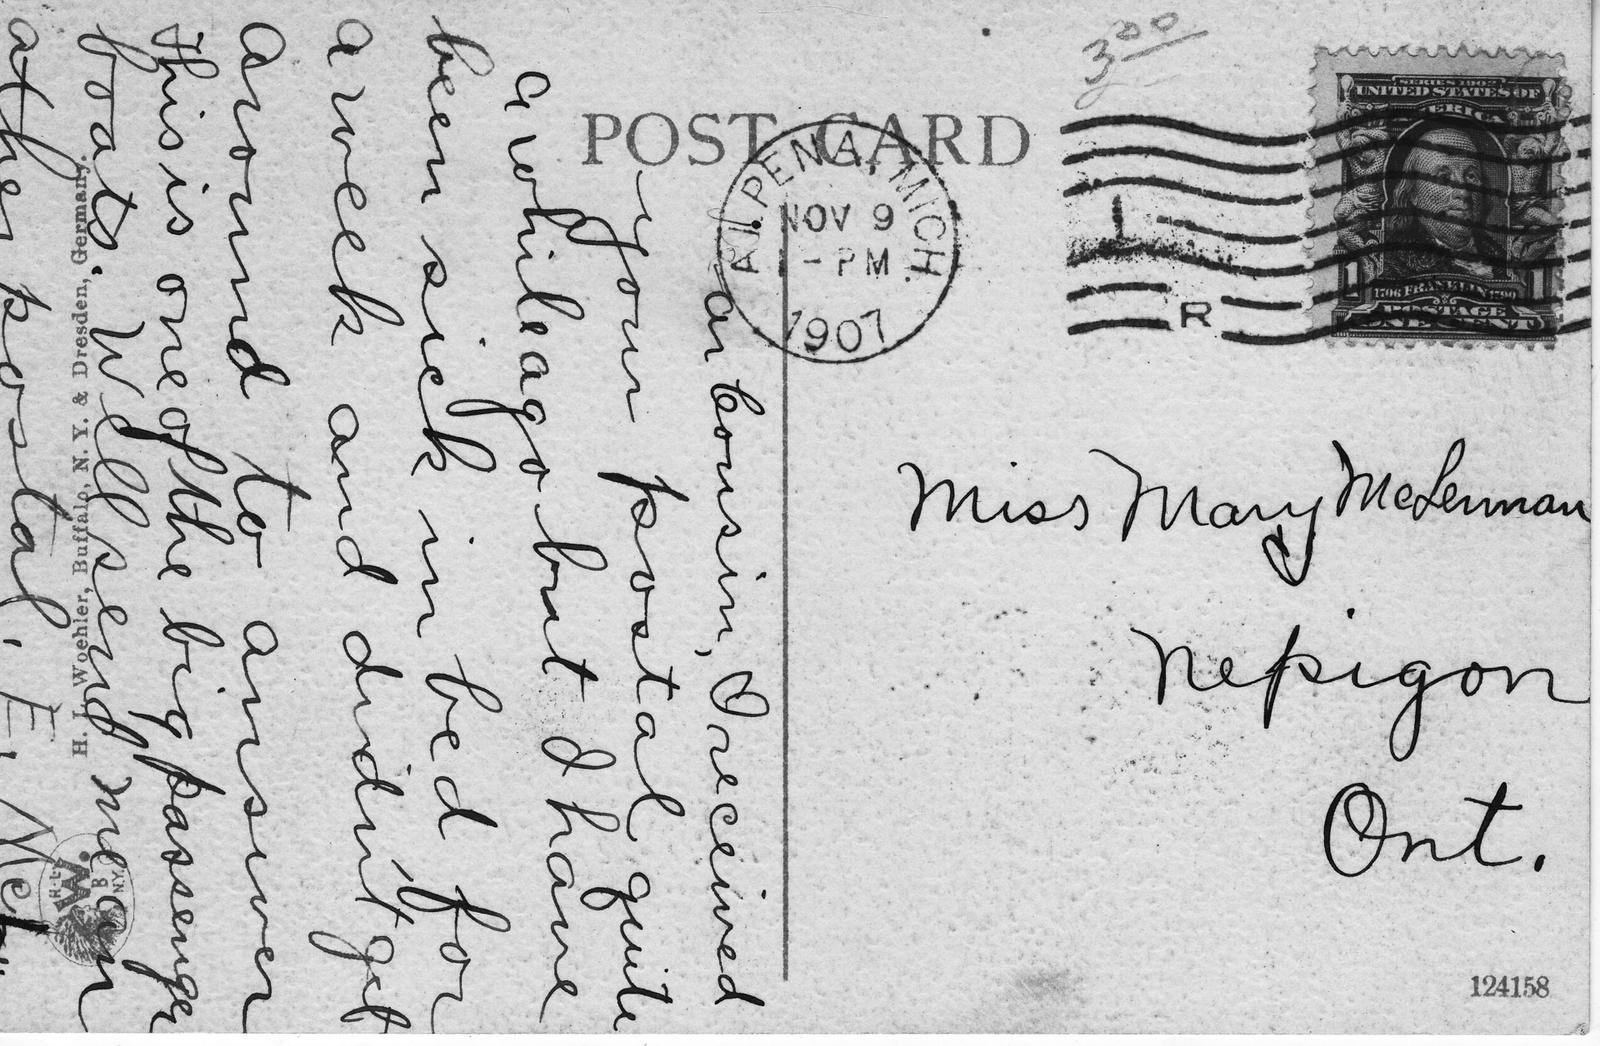 3⁰⁰
POST CARD
ALPENA, MICH.
NOV 9
1 - PM
1907
R
SERIES 1902
UNITED STATES OF
AMERICA
1 1
1706 FRANKLIN 1790
POSTAGE
ONE CENT
Miss Mary McLennan
Nepigon
Ont.
124158
Cousin, I received
your postal quite
a while ago but I have
been sick in bed for
a week and didn't get
around to answer
This is one of the big passenger
boats. Will send
other postal. E.
H. L. Woehler, Buffalo, N. Y. & Dresden, Germany.
H·L·
W.
B
N.Y.